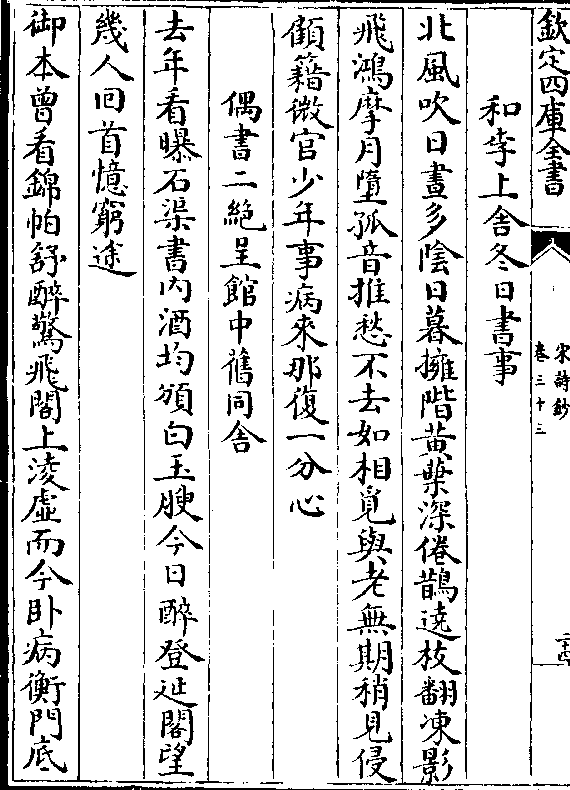 欽定四庫全書
宋詩鈔
卷三十三
二十四
和李上舍冬日書事
北風吹日晝多陰日暮擁階黃葉深倦鵲遶枝翻凍影
飛鴻摩月墮孤音推愁不去如相覓與老無期稍見侵
顧籍微官少年事病來那復一分心
偶書二絶呈館中舊同舍
去年看曝石渠書内酒均頒白玉腴今日醉登延閣望
幾人回首憶窮途
御本曾看錦帕舒醉驚飛閣上淩虚而今卧病衡門底